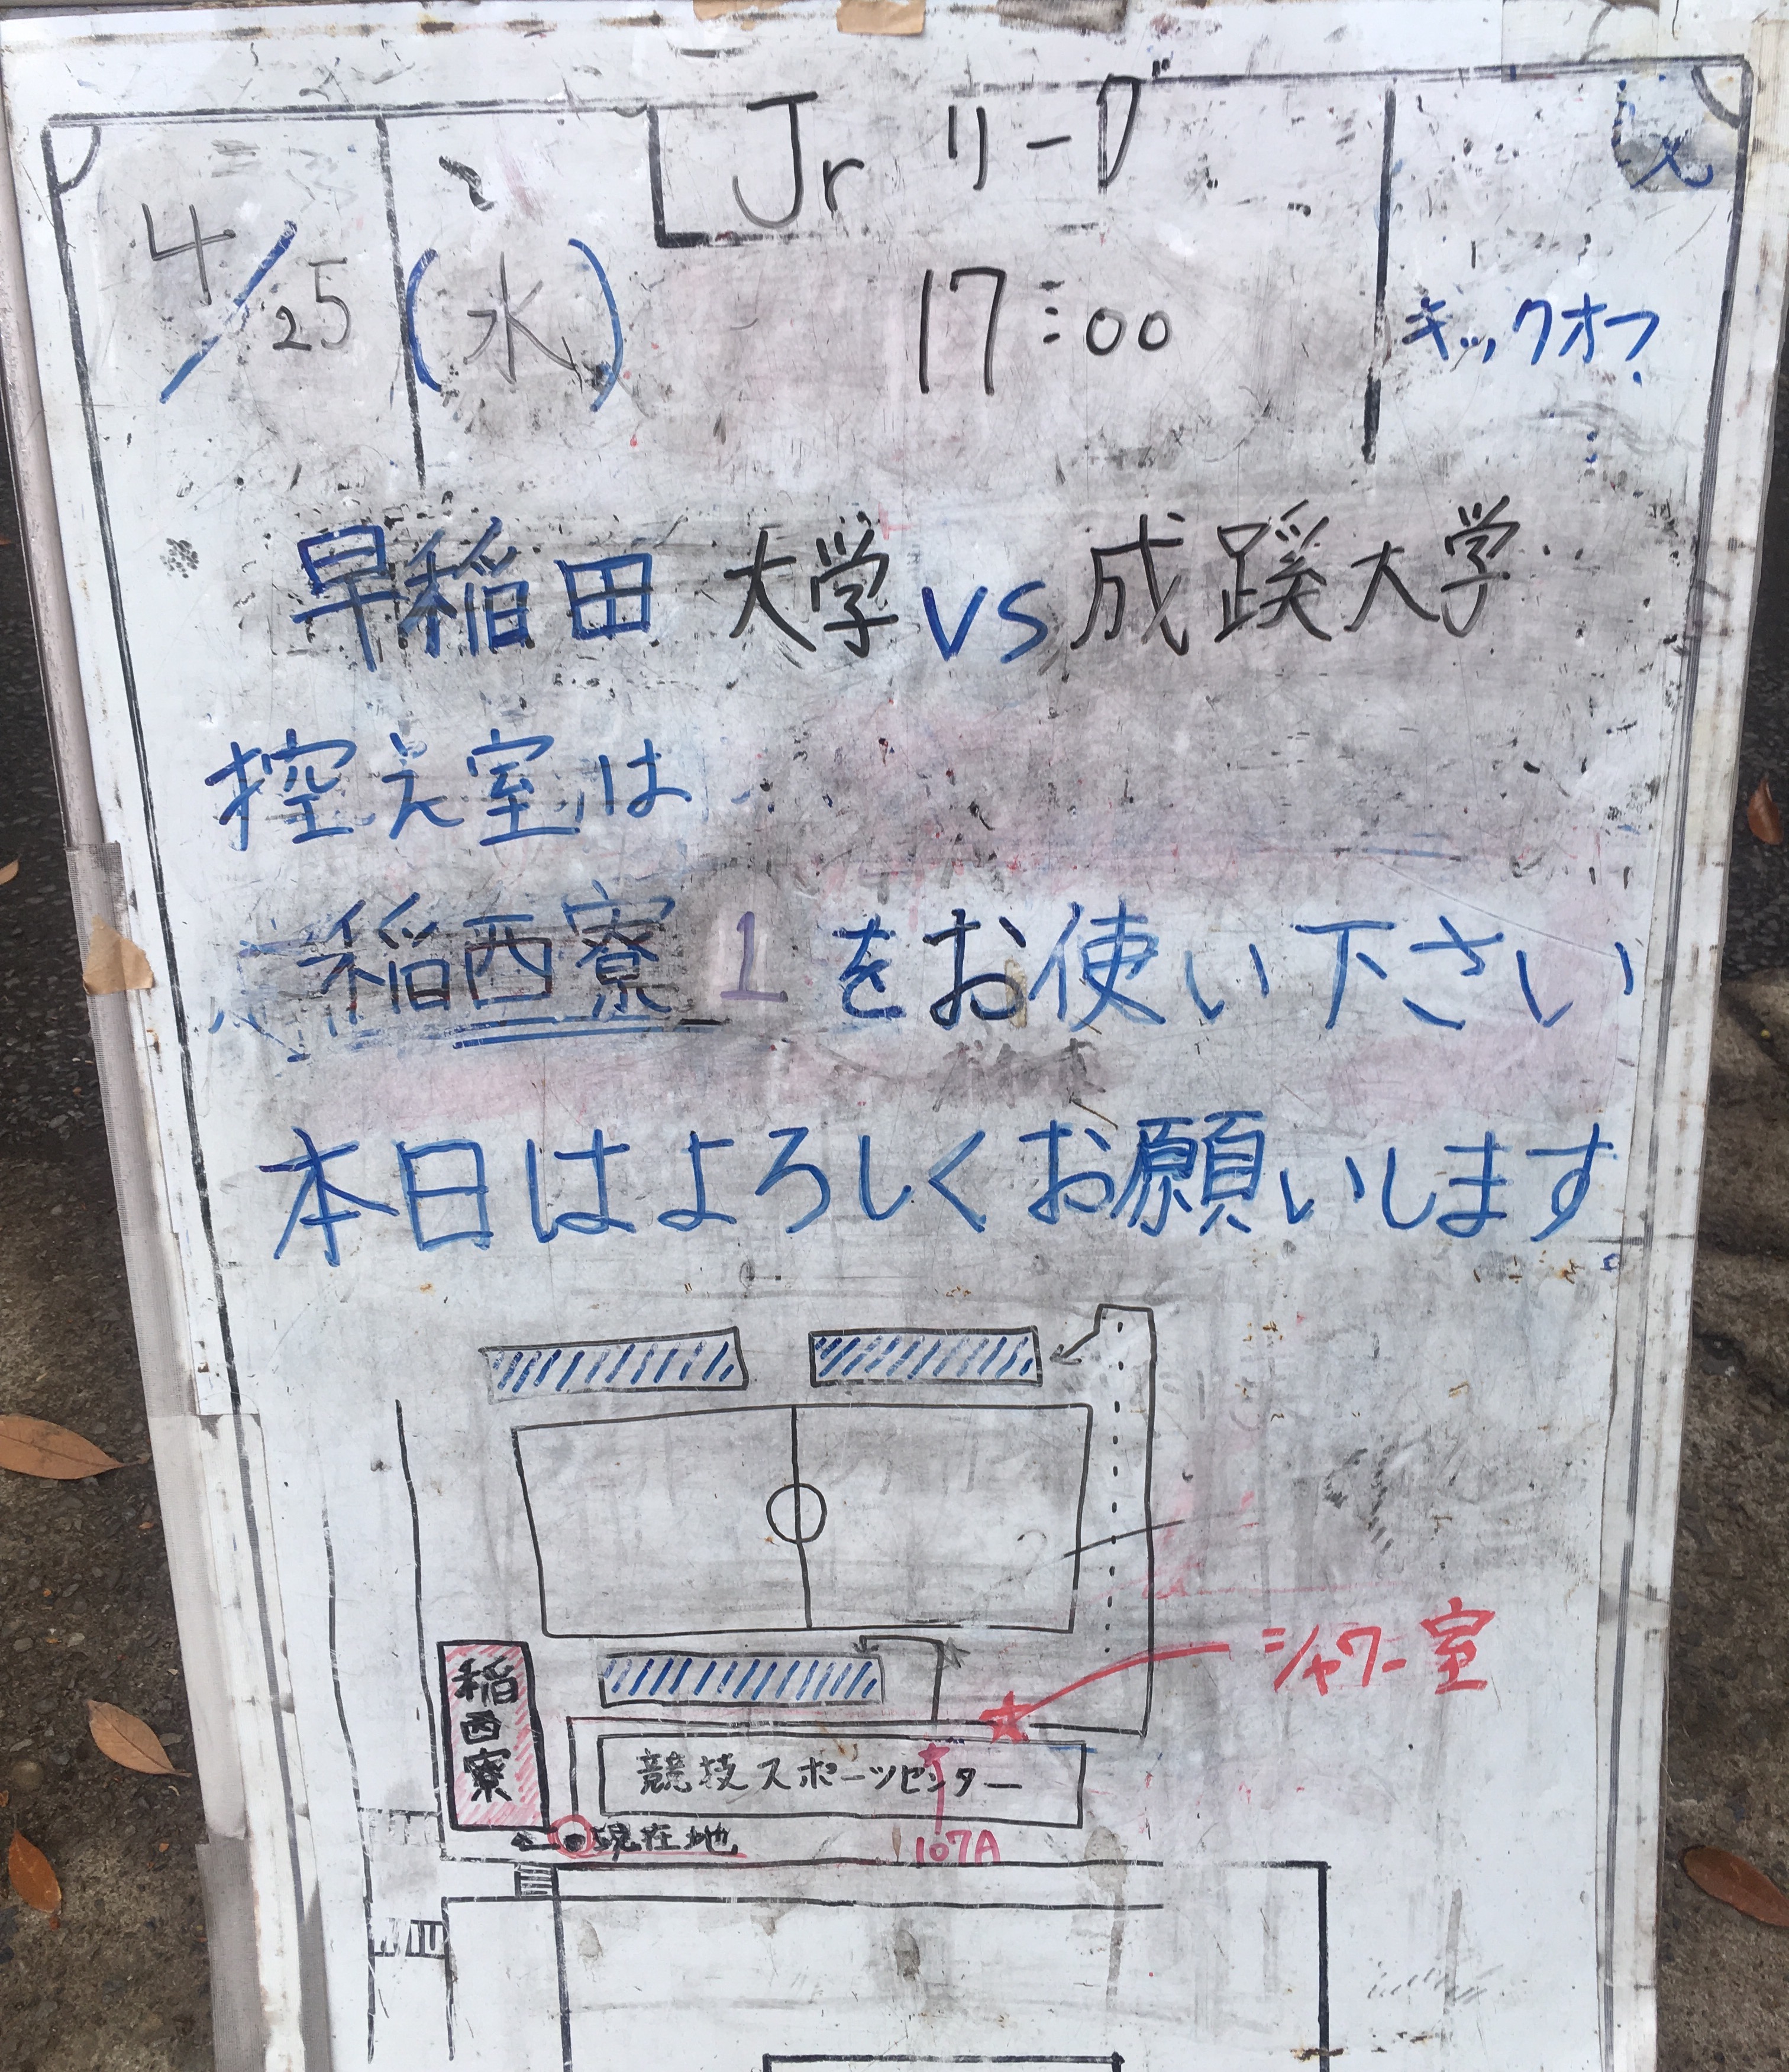 Jr リーグ
4/25 (水) 17:00 キックオフ
早稲田 大学 vs 成蹊大学
控え室は
稲西寮 1 をお使い下さい
本日はよろしくお願いします。
シャワー室
稲西寮
競技スポーツセンター
現在地
107A